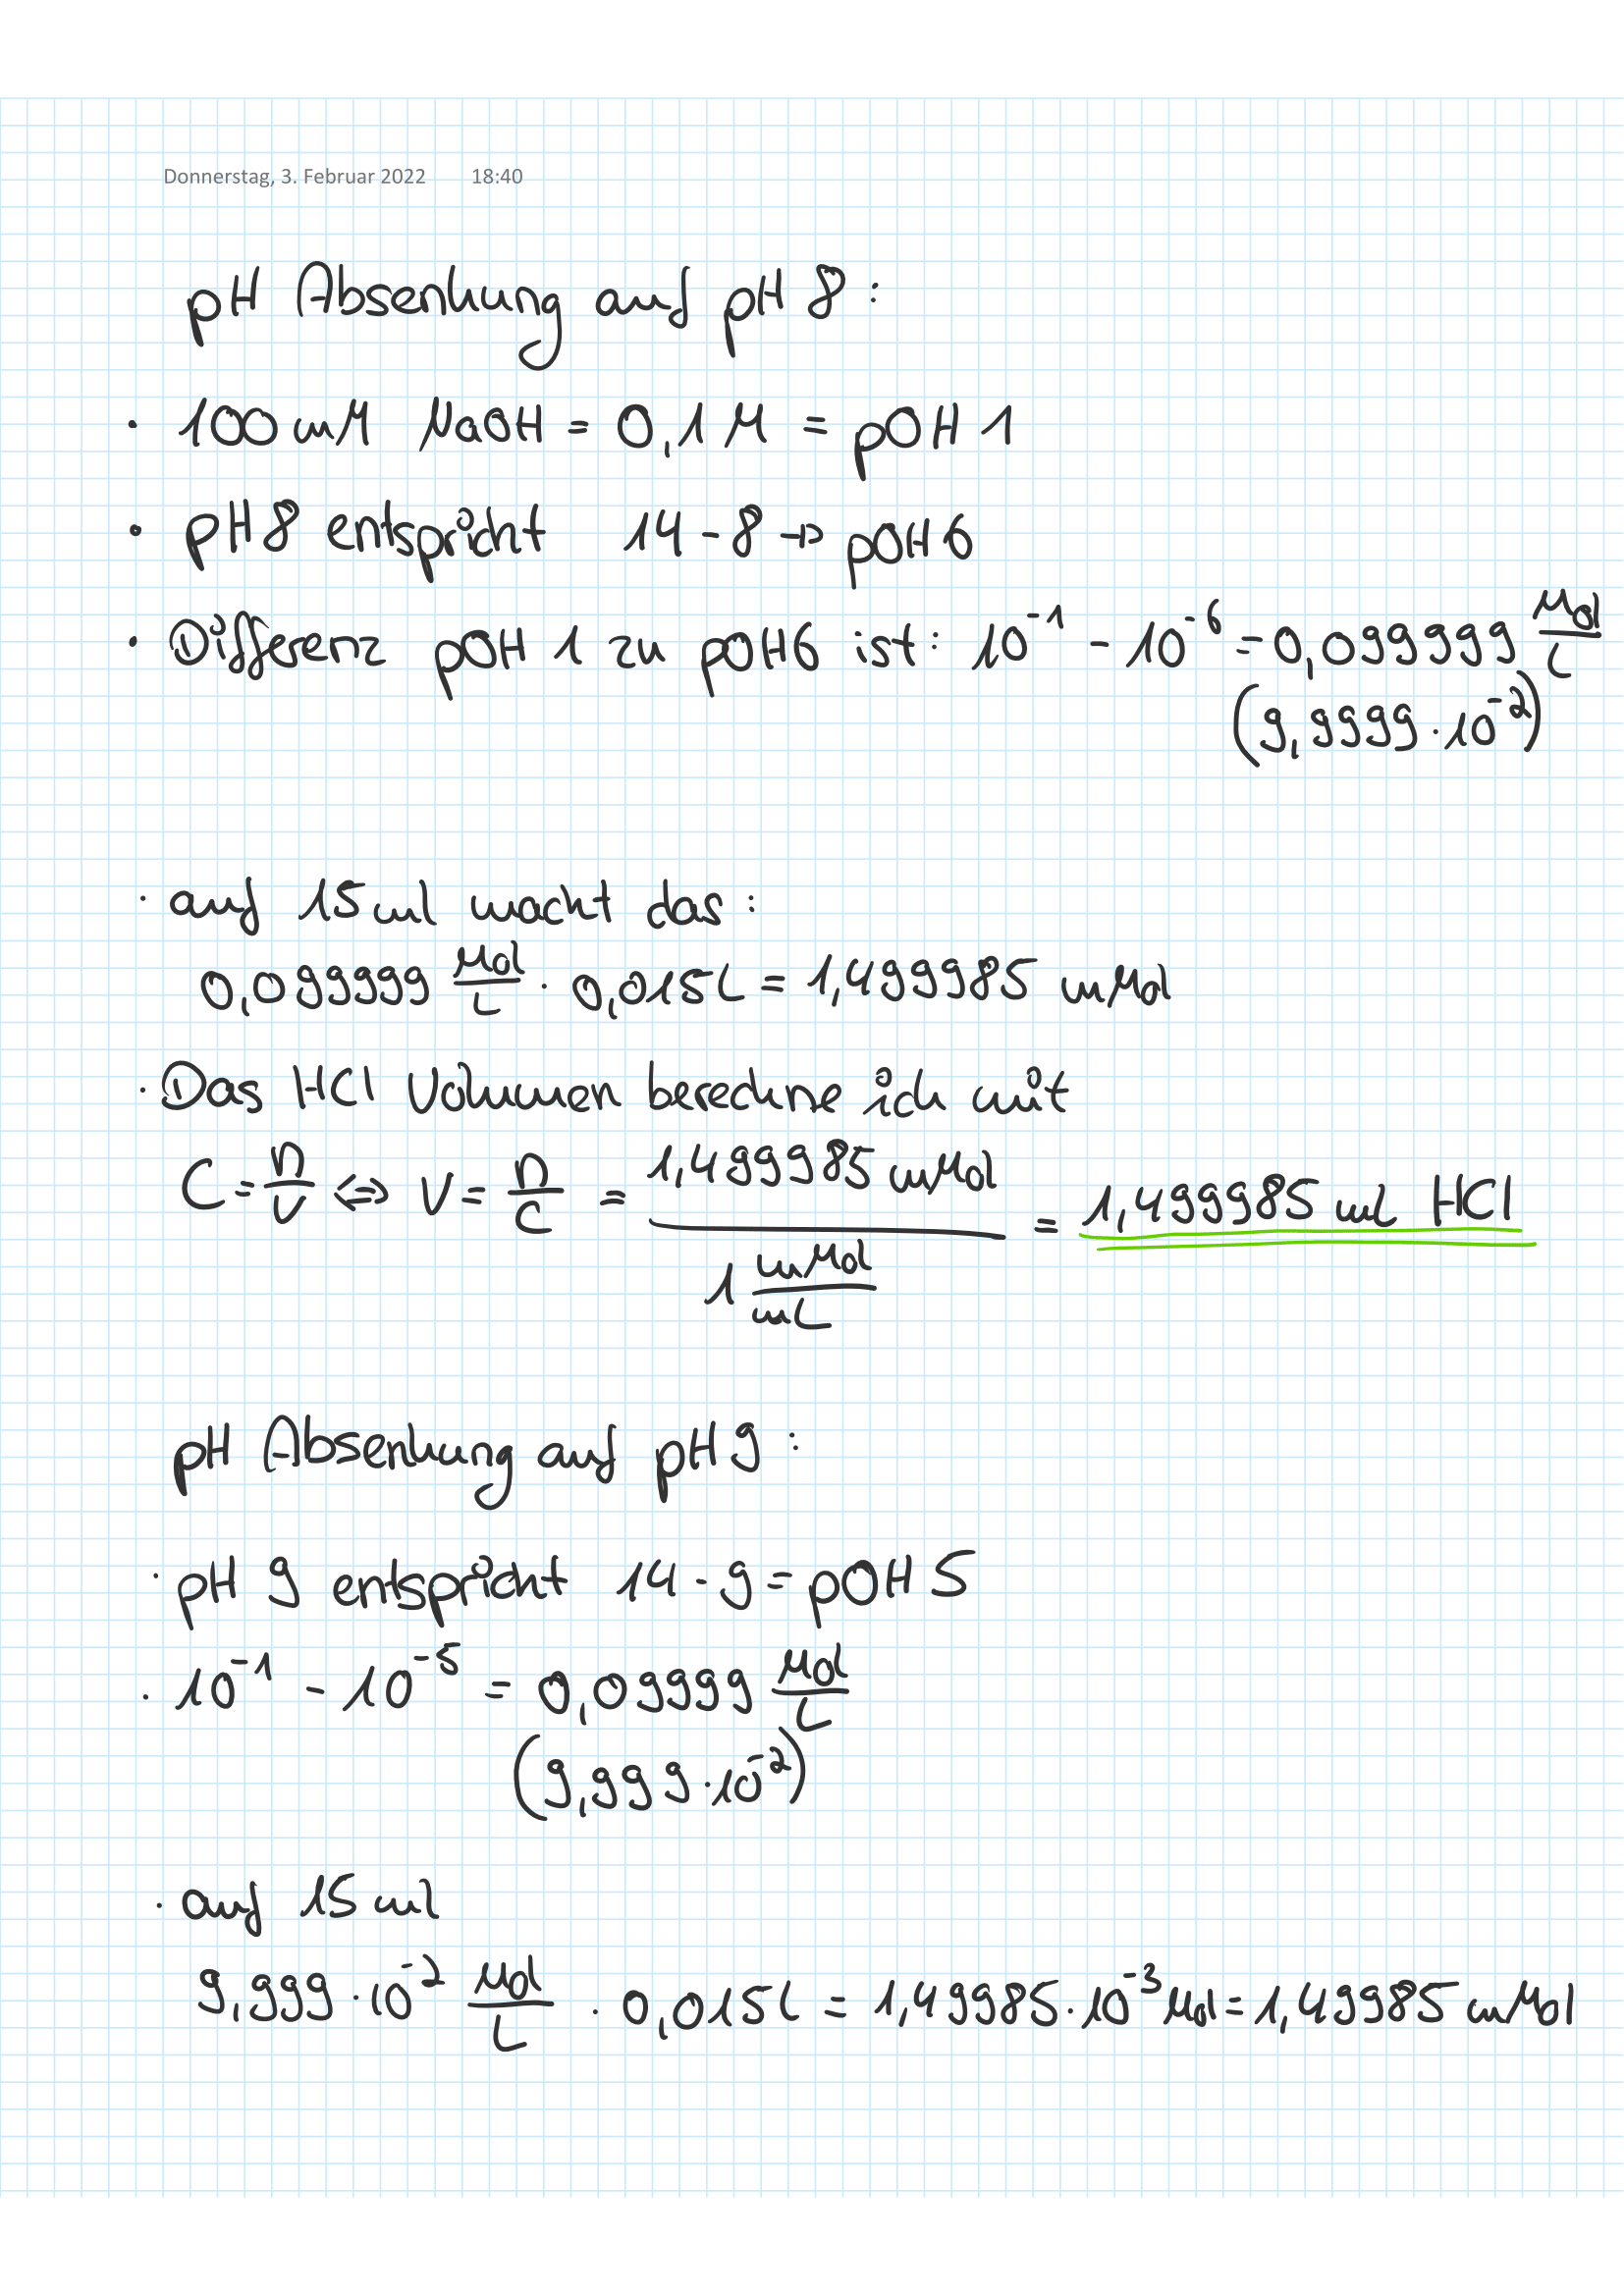 Donnerstag, 3. Februar 2022 18:40
pH Absenkung auf pH 8:
· 100 mM NaOH = 0,1 M = pOH 1
· pH 8 entspricht 14 - 8 → pOH 6
· Differenz pOH 1 zu pOH 6 ist: 10⁻¹ - 10⁻⁶ = 0,099999 Mol/L
(9,9999 · 10⁻²)
· auf 15 ml macht das:
0,099999 Mol/L · 0,015 L = 1,499985 mMol
· Das HCl Volumen berechne ich mit
C = n/V ⇔ V = n/C = 1,499985 mMol / 1 mMol/mL = 1,499985 mL HCl
pH Absenkung auf pH 9:
· pH 9 entspricht 14 - 9 = pOH 5
· 10⁻¹ - 10⁻⁵ = 0,09999 Mol/L
(9,999 · 10⁻²)
· auf 15 ml
9,999 · 10⁻² Mol/L · 0,015 L = 1,49985 · 10⁻³ Mol = 1,49985 mMol